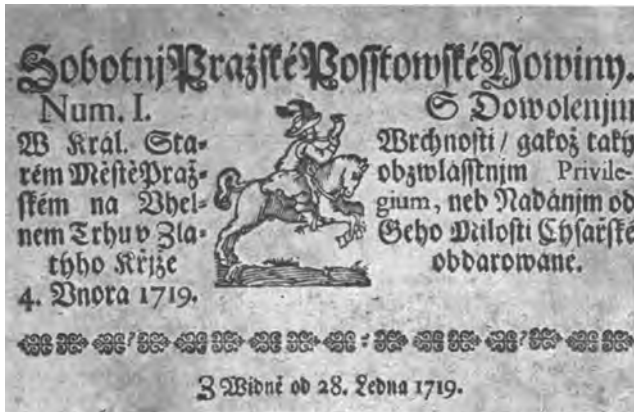 Sobotnj Pražské Posstowské Nowiny.
Num. I.
W Král. Sta-
rém Městě Praž-
ském na Vhel-
nem Trhu v Zla-
týho Křjže
4. Vnora 1719.
S Dowolenjm
Wrchnosti / gakož taky
obzwlásstnjm Privile-
gium, neb Nadánjm od
Geho Milosti Cýsařské
obdarowané.
Z Widně od 28. Ledna 1719.